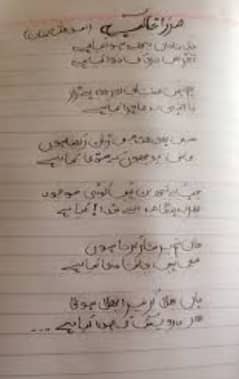 مرزا غالب (اسد اللہ خان)
دل ناداں تجھے ہوا کیا ہے
آخر اس درد کی دوا کیا ہے
ہم ہیں مشتاق اور وہ بیزار
یا الٰہی یہ ماجرا کیا ہے
میں بھی منہ میں زبان رکھتا ہوں
کاش پوچھو کہ مدعا کیا ہے
جب کہ تجھ بن نہیں کوئی موجود
پھر یہ ہنگامہ اے خدا! کیا ہے
جان تم پر نثار کرتا ہوں
میں نہیں جانتا دعا کیا ہے
ہاں بھلا کر ترا بھلا ہوگا
اور درویش کی صدا کیا ہے ...